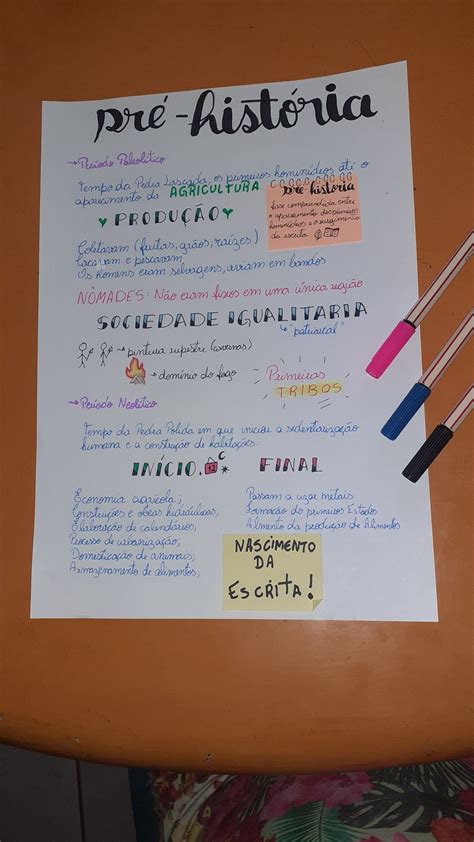 pré-história
→ Período Paleolítico
Tempo da Pedra Lascada, os primeiros hominídeos até o
aparecimento da AGRICULTURA
pré-história
fase compreendida entre
o aparecimento dos primeiros
hominídeos e o surgimento
da escrita
PRODUÇÃO
Coletavam (frutas, grãos, raízes)
Caçavam e pescavam
Os homens eram selvagens, viviam em bandos
NÔMADES: Não eram fixos em uma única região
SOCIEDADE IGUALITARIA
↳ "patriarcal"
→ pintura rupestre (cavernas)
→ domínio do fogo
Primeiras
TRIBOS
→ Período Neolítico
Tempo da Pedra Polida em que iniciou a sedentarização
humana e a construção de habitações.
INÍCIO.
12
FINAL
Economia agrícola;
Construções e obras hidráulicas;
Elaboração de calendários;
Processo de urbanização;
Domesticação de animais;
Armazenamento de alimentos;
Passam a usar metais
Formação dos primeiros Estados
Aumento da produção de Alimentos
NASCIMENTO
DA
ESCRITA!